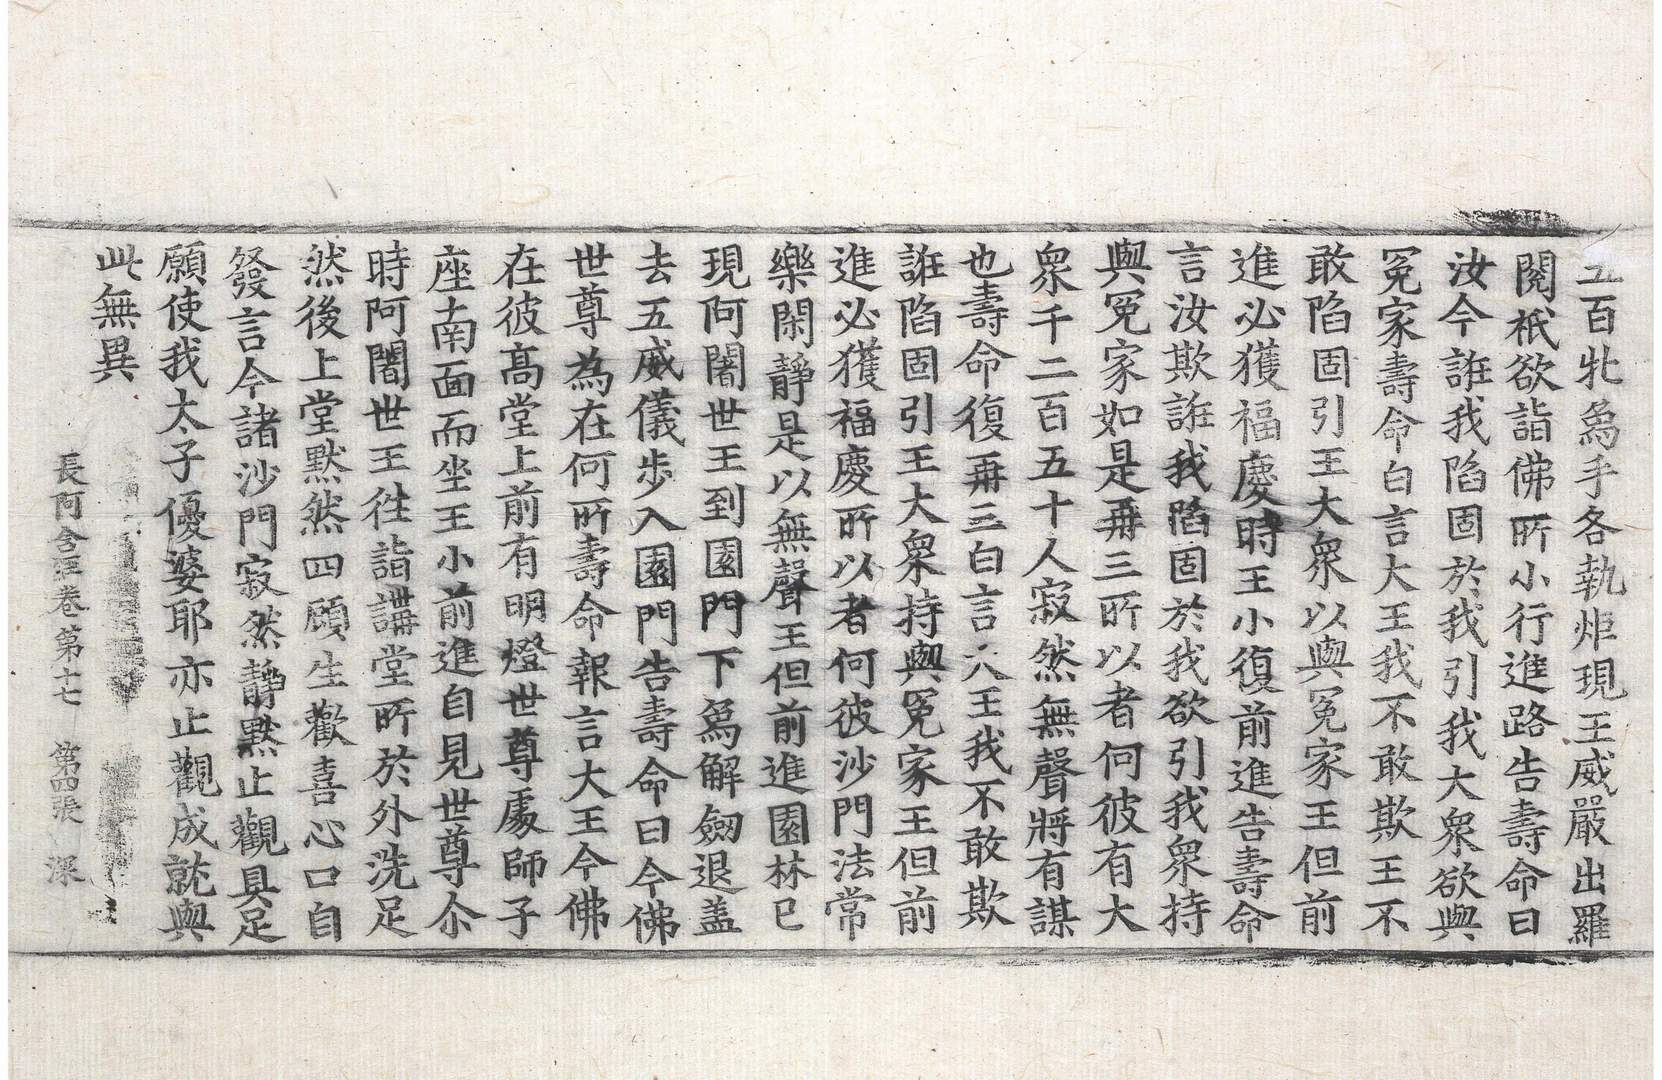 五百牝爲手各執炬現王威嚴出羅
閱祇欲詣佛所小行進路告壽命曰
汝今誑我陷固於我引我大衆欲與
冤家壽命白言大王我不敢欺王不
敢陷固引王大衆以與冤家王但前
進必獲福慶時王小復前進告壽命
言汝欺誑我陷固於我欲引我衆持
與冤家如是再三所以者何彼有大
衆千二百五十人寂然無聲將有謀
也壽命復再三白言大王我不敢欺
誑陷固引王大衆持與冤家王但前
進必獲福慶所以者何彼沙門法常
樂閑靜是以無聲王但前進園林已
現阿闍世王到園門下爲解劒退蓋
去五威儀步入園門告壽命曰今佛
世尊為在何所壽命報言大王今佛
在彼高堂上前有明燈世尊處師子
座南面而坐王小前進自見世尊尒
時阿闍世王徃詣講堂所於外洗足
然後上堂默然四顧生歡喜心口自
發言今諸沙門寂然靜默止觀具足
願使我太子優婆耶亦止觀成就與
此無異
長阿含經卷第十七 第四張 深